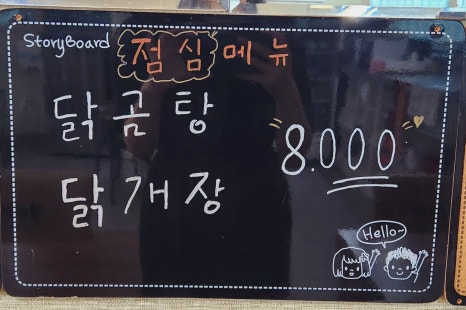 StoryBoard
점심메뉴
닭곰탕
8.000
닭개장
Hello~